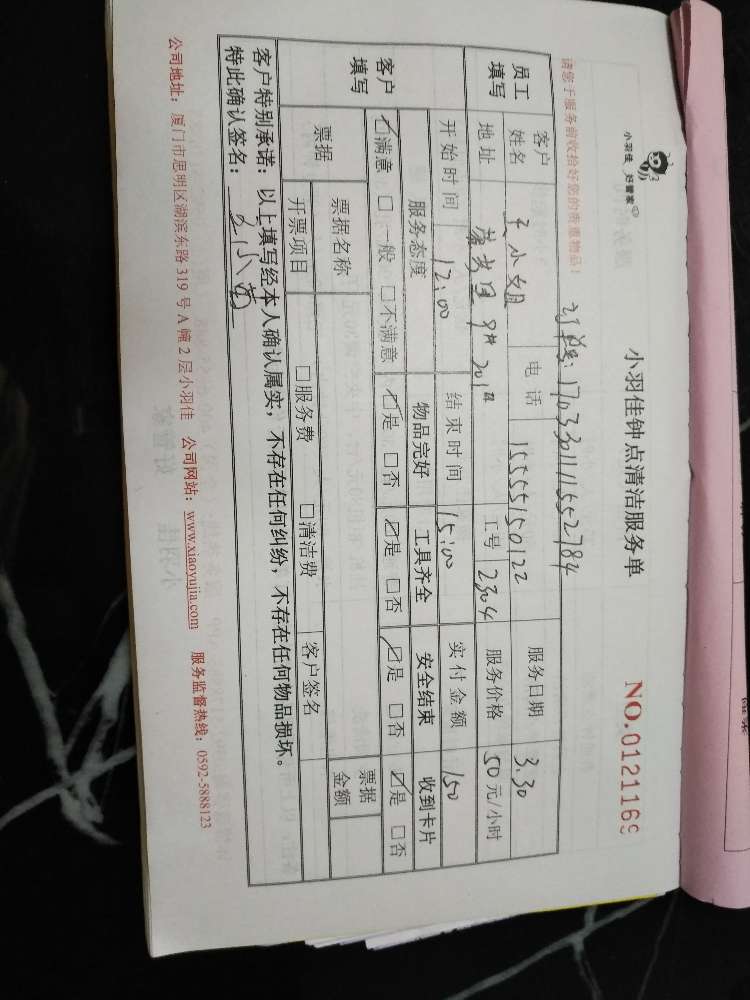 小羽佳 好管家
小羽佳钟点清洁服务单
NO.0121169
请您于服务前收拾好您的贵重物品！
员工填写 客户姓名 小姐 电话 15555150122 服务日期 3.30
地址 工号 2304 服务价格 50元/小时
客户填写 开始时间 12:00 结束时间 15:00 实付金额 150
服务态度 物品完好 工具齐全 安全结束 收到卡片
☑满意 □一般 □不满意 ☑是 □否 ☑是 □否 ☑是 □否 ☑是 □否
票据 票据名称 票据金额
开票项目 □服务费 □清洁费 客户签名
客户特别承诺：以上填写经本人确认属实，不存在任何纠纷，不存在任何物品损坏。
特此确认签名：
公司地址：厦门市思明区湖滨东路319号A幢2层小羽佳 公司网站：www.xiaoyujia.com 服务监督热线：0592-5888123